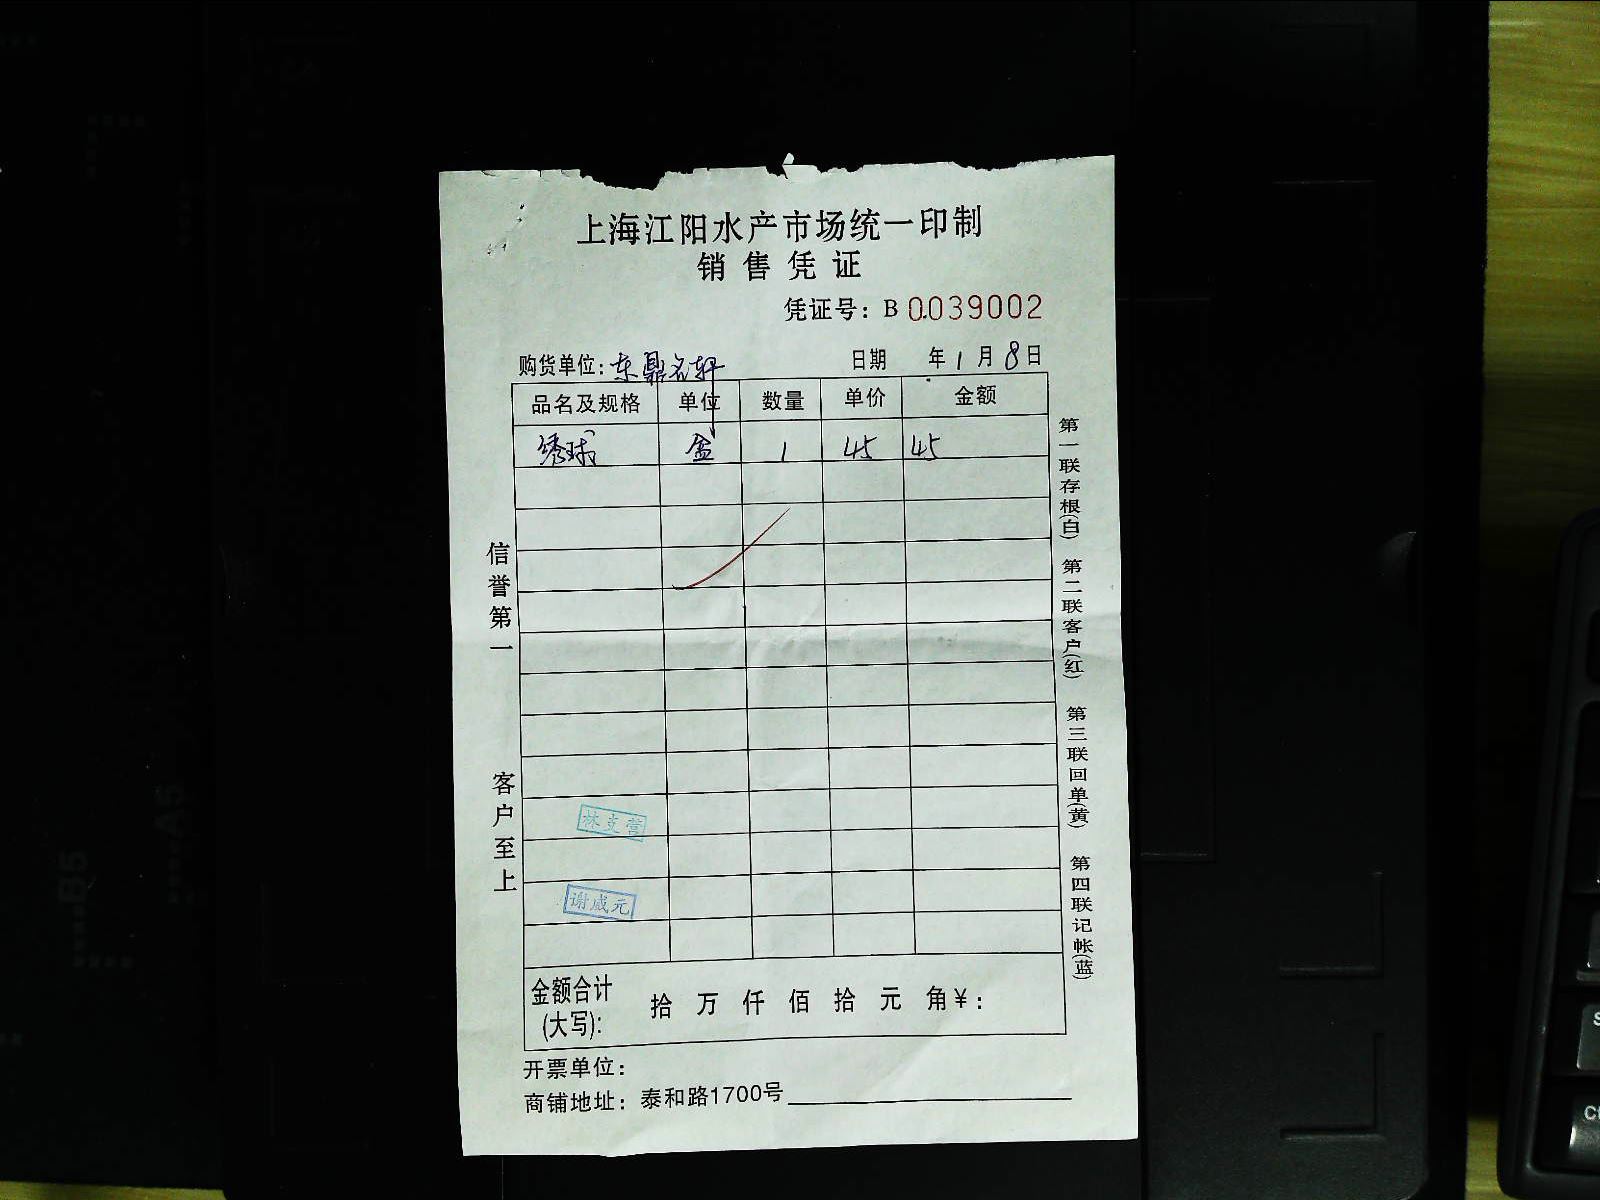 上海江阳水产市场统一印制
销售凭证
凭证号：B 0039002
购货单位：东鼎名轩 日期 年1月8日
品名及规格 单位 数量 单价 金额
绣球 盒 1 45 45
信誉第一
客户至上
第一联存根(白)
第二联客户(红)
第三联回单(黄)
第四联记帐(蓝)
林支营
谢成元
金额合计(大写): 拾 万 仟 佰 拾 元 角 ¥：
开票单位：
商铺地址：泰和路1700号
B5
A5